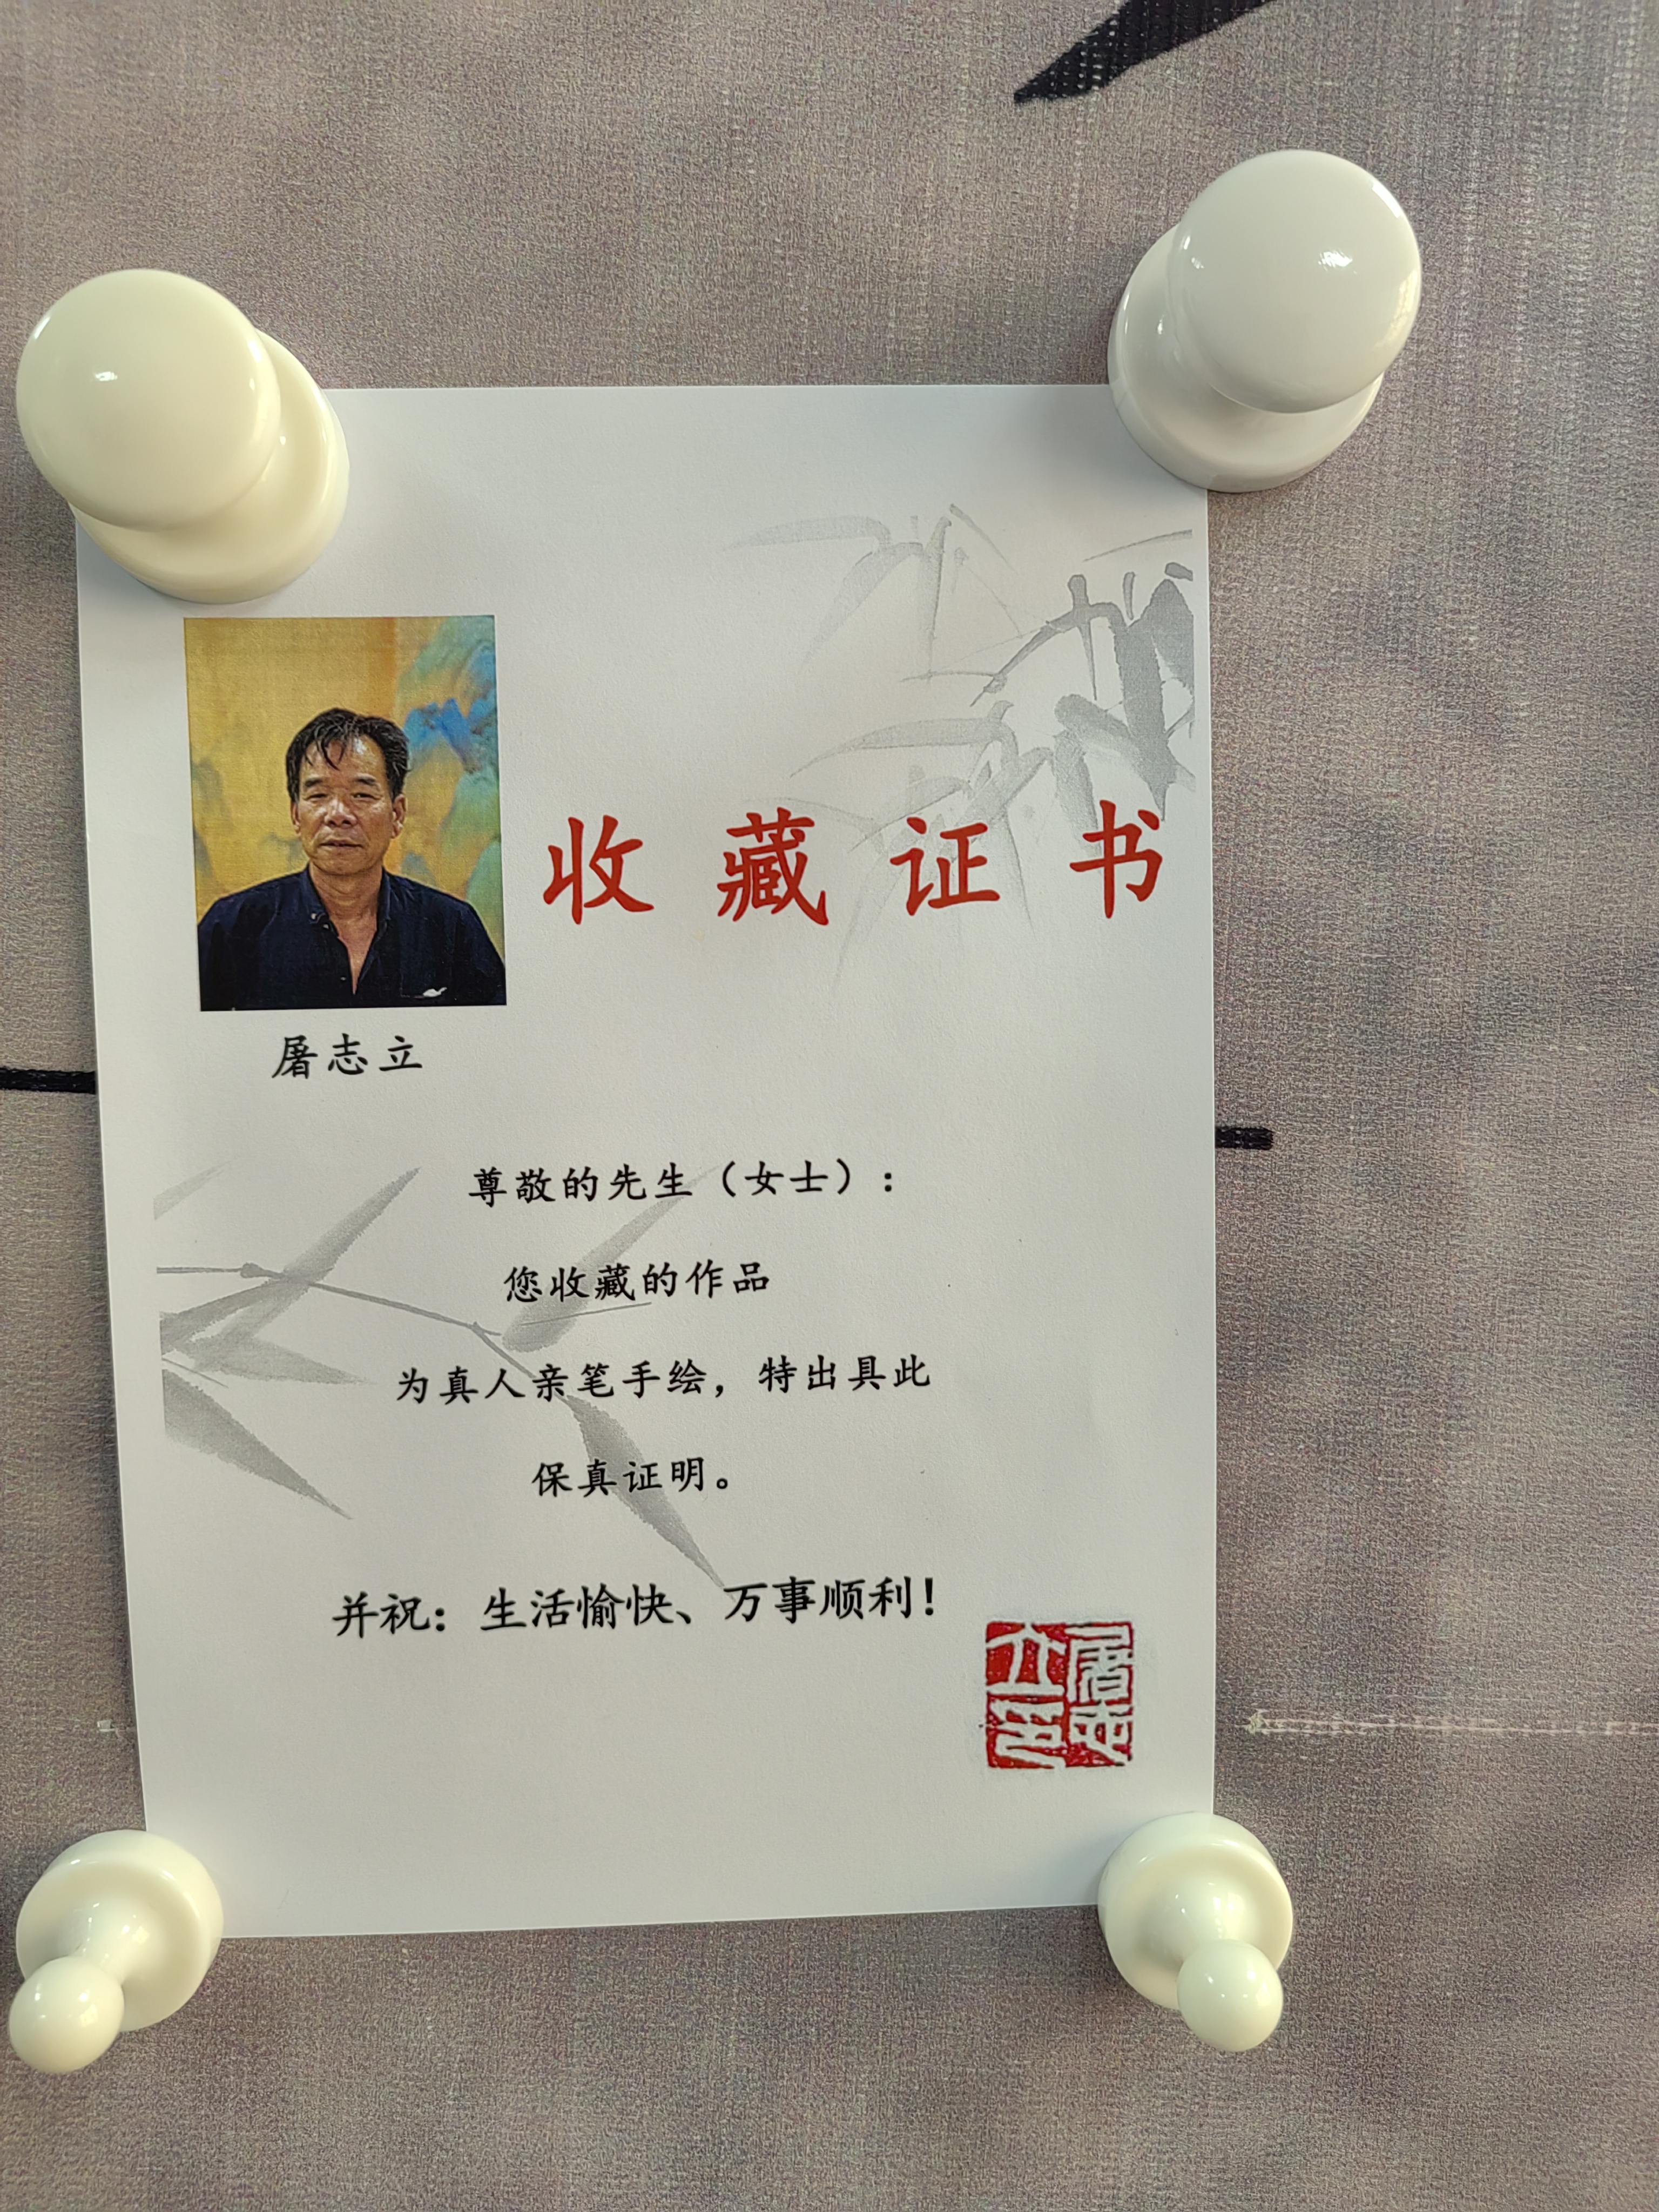 收藏证书
屠志立
尊敬的先生（女士）：
您收藏的作品
为真人亲笔手绘，特出具此
保真证明。
并祝：生活愉快、万事顺利！
屠志
立印